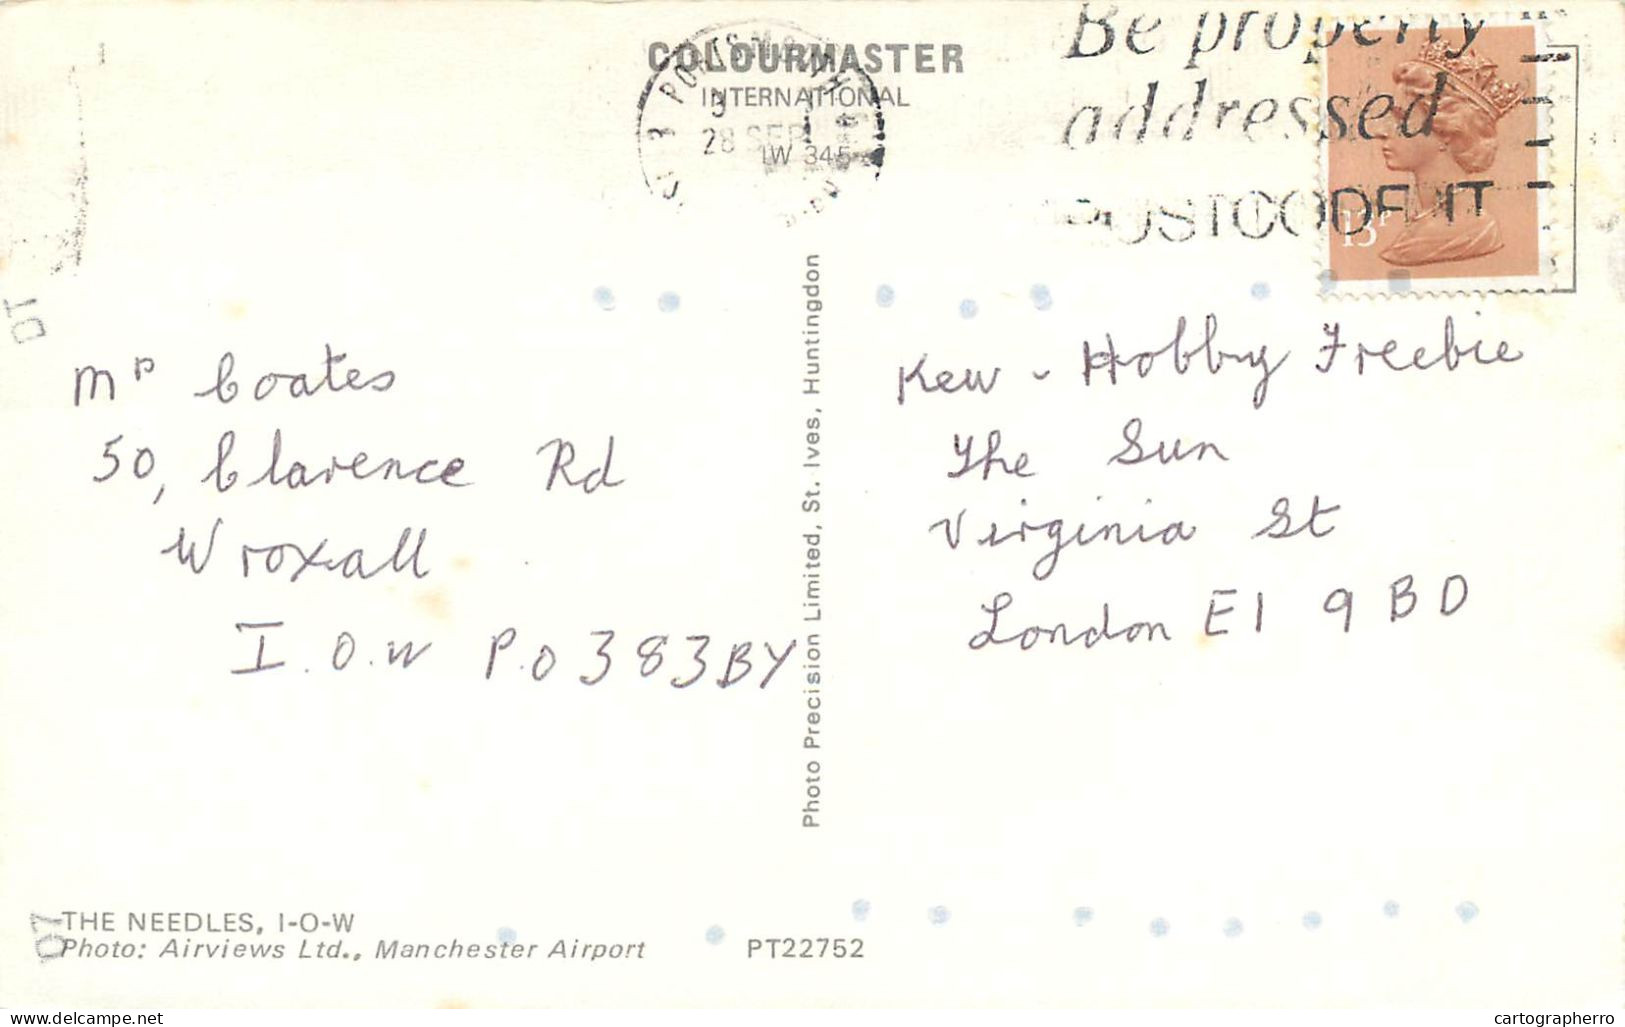 COLOURMASTER
INTERNATIONAL
IW 345
PORTSMOUTH
28 SEP
Be properly
addressed
POSTCODE IT
13P
Mr Coates
50, Clarence Rd
Wroxall
I.O.W P.O383BY
Photo Precision Limited, St. Ives, Huntingdon
Kew - Hobby Freebie
The Sun
Virginia St
London E1 9BD
THE NEEDLES, I-O-W
Photo: Airviews Ltd., Manchester Airport
PT22752
www.delcampe.net
cartographerro